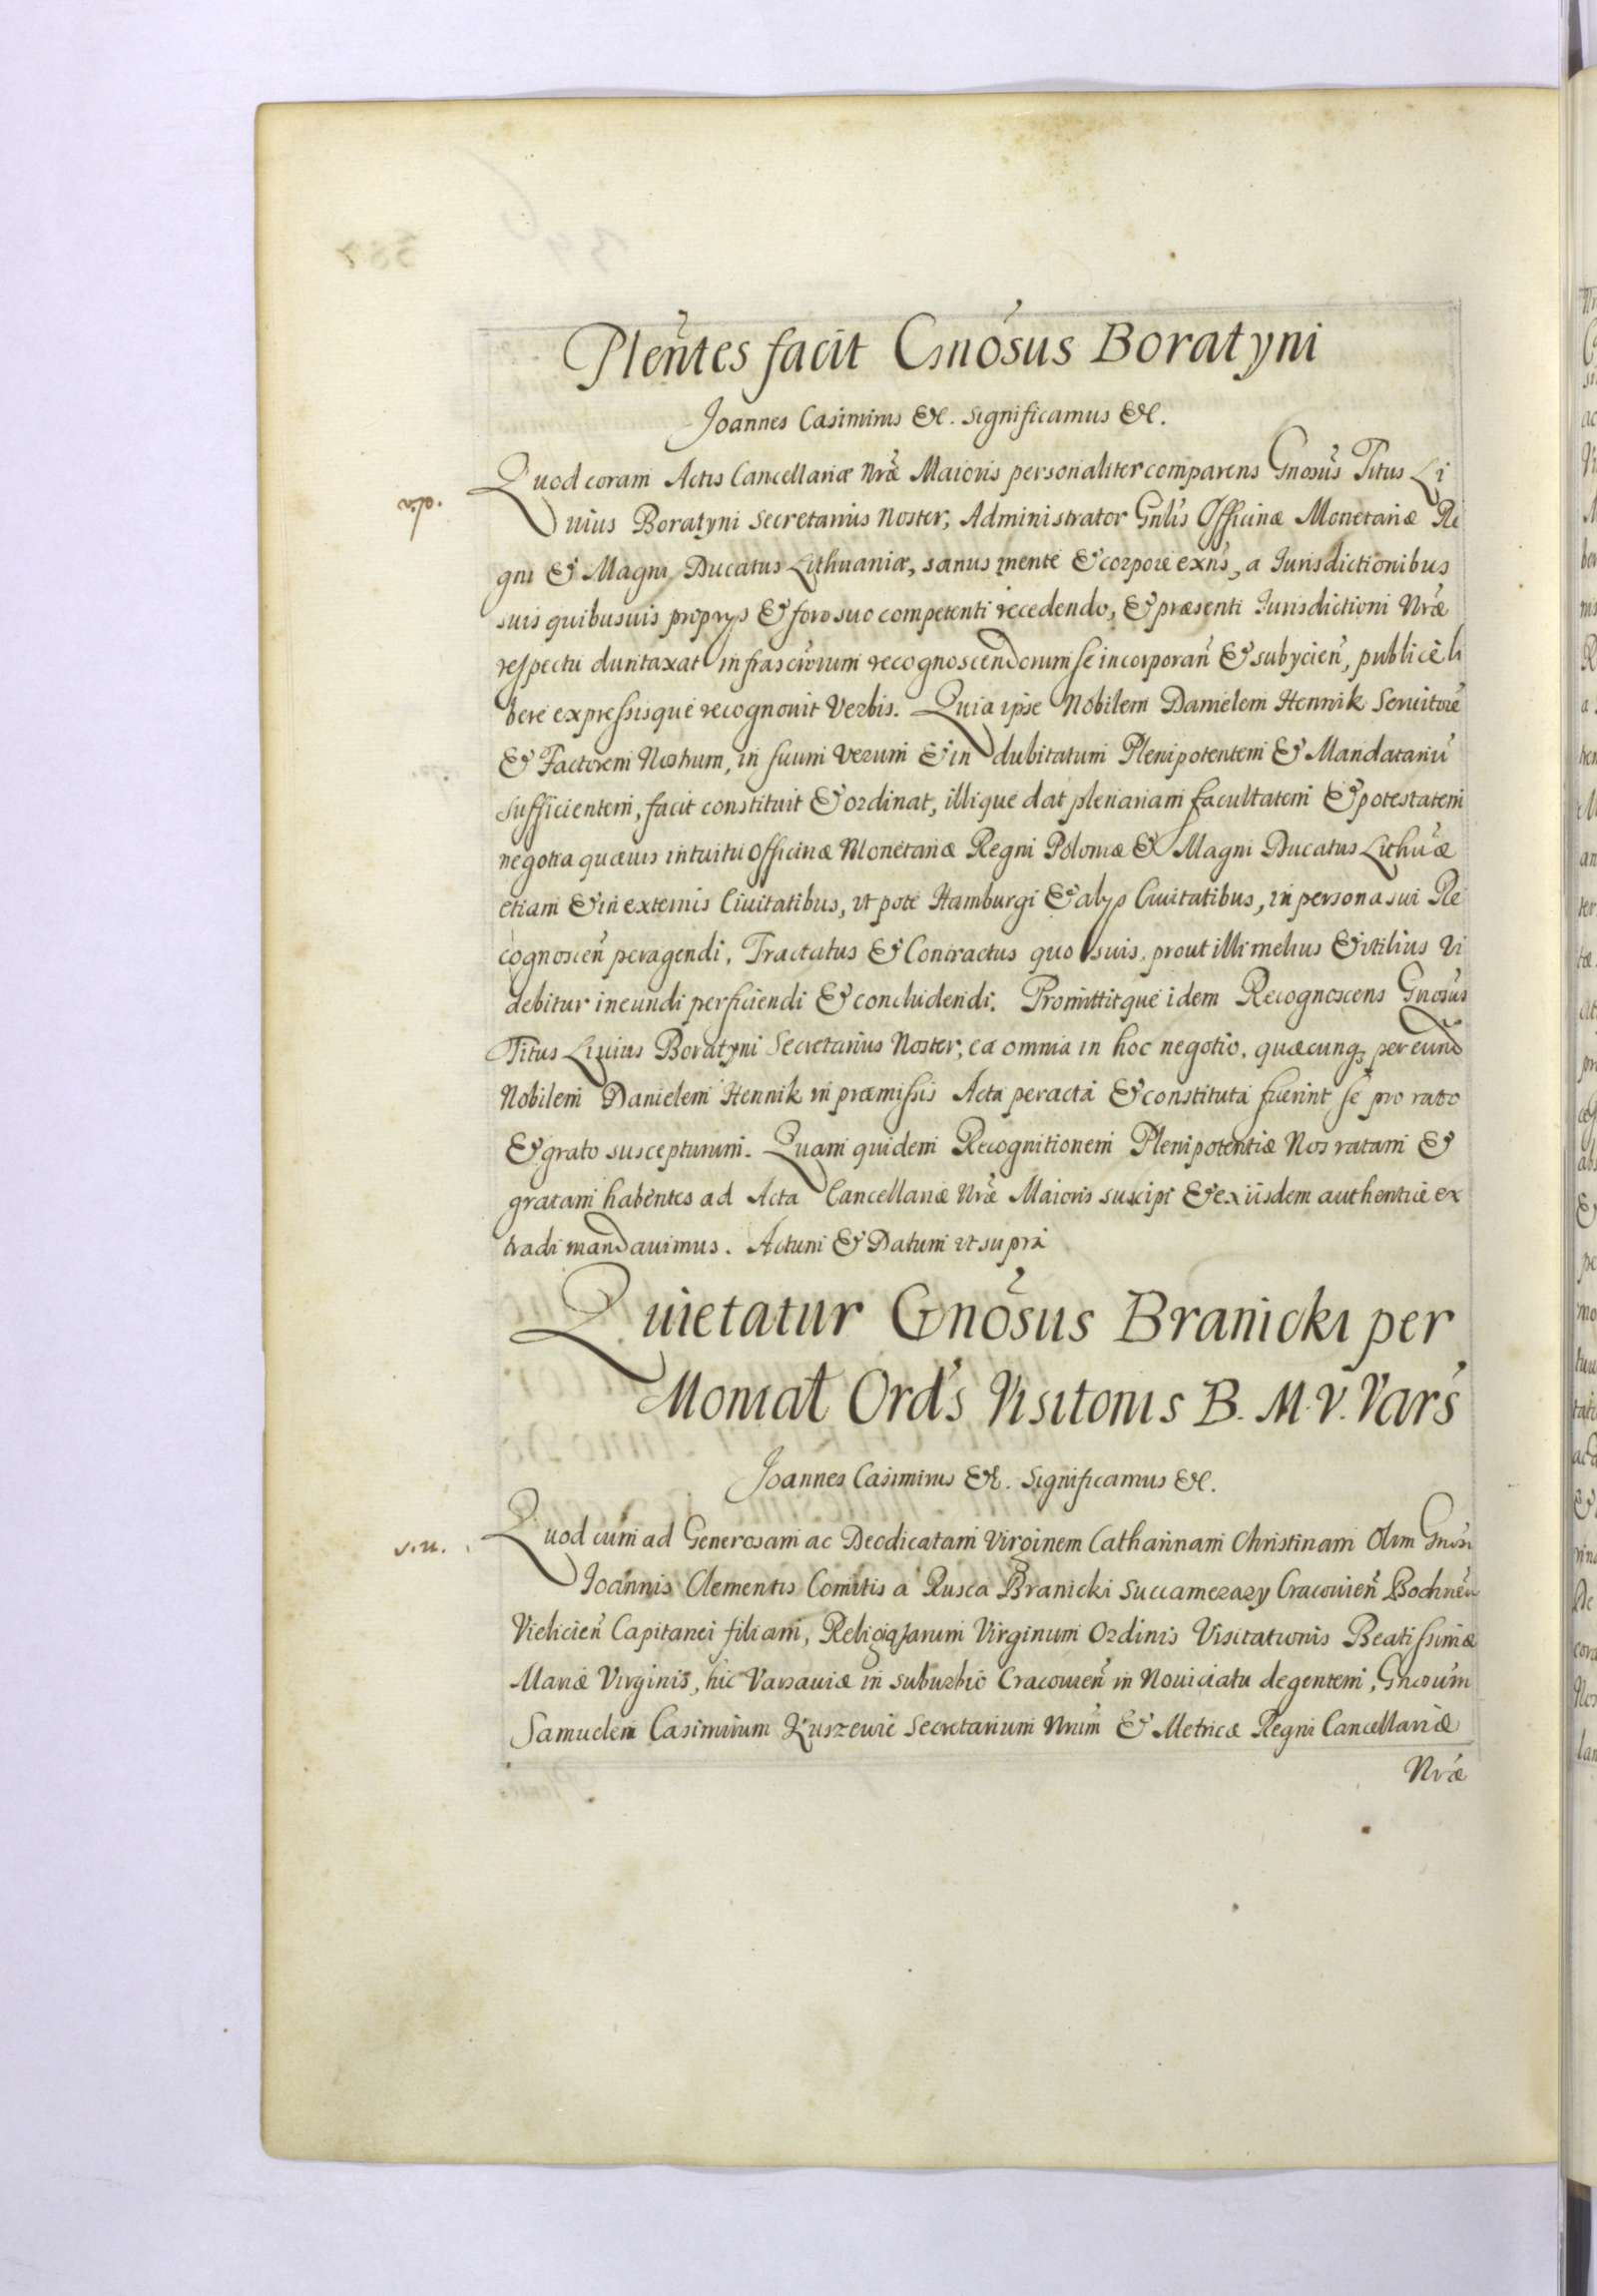 Plen̄tes facit Gnōsus Boratyni
Joannes Casimirus &c. Significamus &c.
Quod coram Actis Cancellariæ Nr̄æ Maioris personaliter comparens Gnosūs Titus Li
uius Boratyni Secretarius Noster, Administrator Gnlīs Officinæ Monetariæ Re
gni & Magni Ducatus Lithuaniæ, sanus mente & corpore exn̄s, a Iurisdictionibus
suis quibusuis proprys & foro suo competenti recedendo, & præsenti Iurisdictioni Nr̄æ
respectu duntaxat infrascr̄orum recognoscendorum se incorporan̄ & subycien̄, publicè li
berè expressisque recognouit Verbis. Quia ipse Nobilem Danielem Hennik Seruitorē
& Factorem Nostrum, in suum verum & in dubitatum Plenipotentem & Mandatariū
sufficientem, facit constituit & ordinat, illique dat plenariam facultatem & potestatem
negotia quæuis intuitu Officinæ Monetariæ Regni Poloniæ & Magni Ducatus Lithūæ
etiam & in externis Ciuitatibus, ut pote Hamburgi & alys Ciuitatibus, in persona sui Re
cognoscen̄ peragendi, Tractatus & Contractus quosuis, prout illi melius & utilius vi
debitur ineundi perficiendi & concludendi. Promittitque idem Recognoscens Gnosūs
Titus Liuius Boratyni Secretarius Noster, ea omnia in hoc negotio, quæcunq; per eund̄
Nobilem Danielem Hennik in præmissis Acta peracta & constituta fuerint se pro rato
& grato suscepturum. Quam quidem Recognitionem Plenipotentiæ Nos ratam &
gratam habentes ad Acta Cancellariæ Nr̄æ Maioris suscipi & ex iisdem authenticè ex
tradi mandauimus. Actum & Datum ut supra
Quietatur Gnōsus Branicki per
Monial Ord's Visitonis B. M. V. Vars̄
Joannes Casimirus &c. Significamus &c.
s. u.
Quod cum ad Generosam ac Deodicatam Virginem Catharinam Christinam Olim Gnosī
Joannis Clementis Comitis a Rusca Branicki Succamerary Cracouien̄ Bochnēn
Vielicien̄ Capitanei filiam, Religiosarum Virginum Ordinis Visitationis Beatissimæ
Mariæ Virginis, hic Varsauiæ in suburbio Cracouien̄ in Nouiciatu degentem, Gnosūm
Samuelem Casimirum Kuszewic Secretarium Nrūm & Metricæ Regni Cancellariæ
Nr̄æ